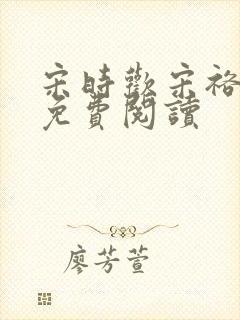 宋時歡宋裕
免費閱讀
廖芳萱